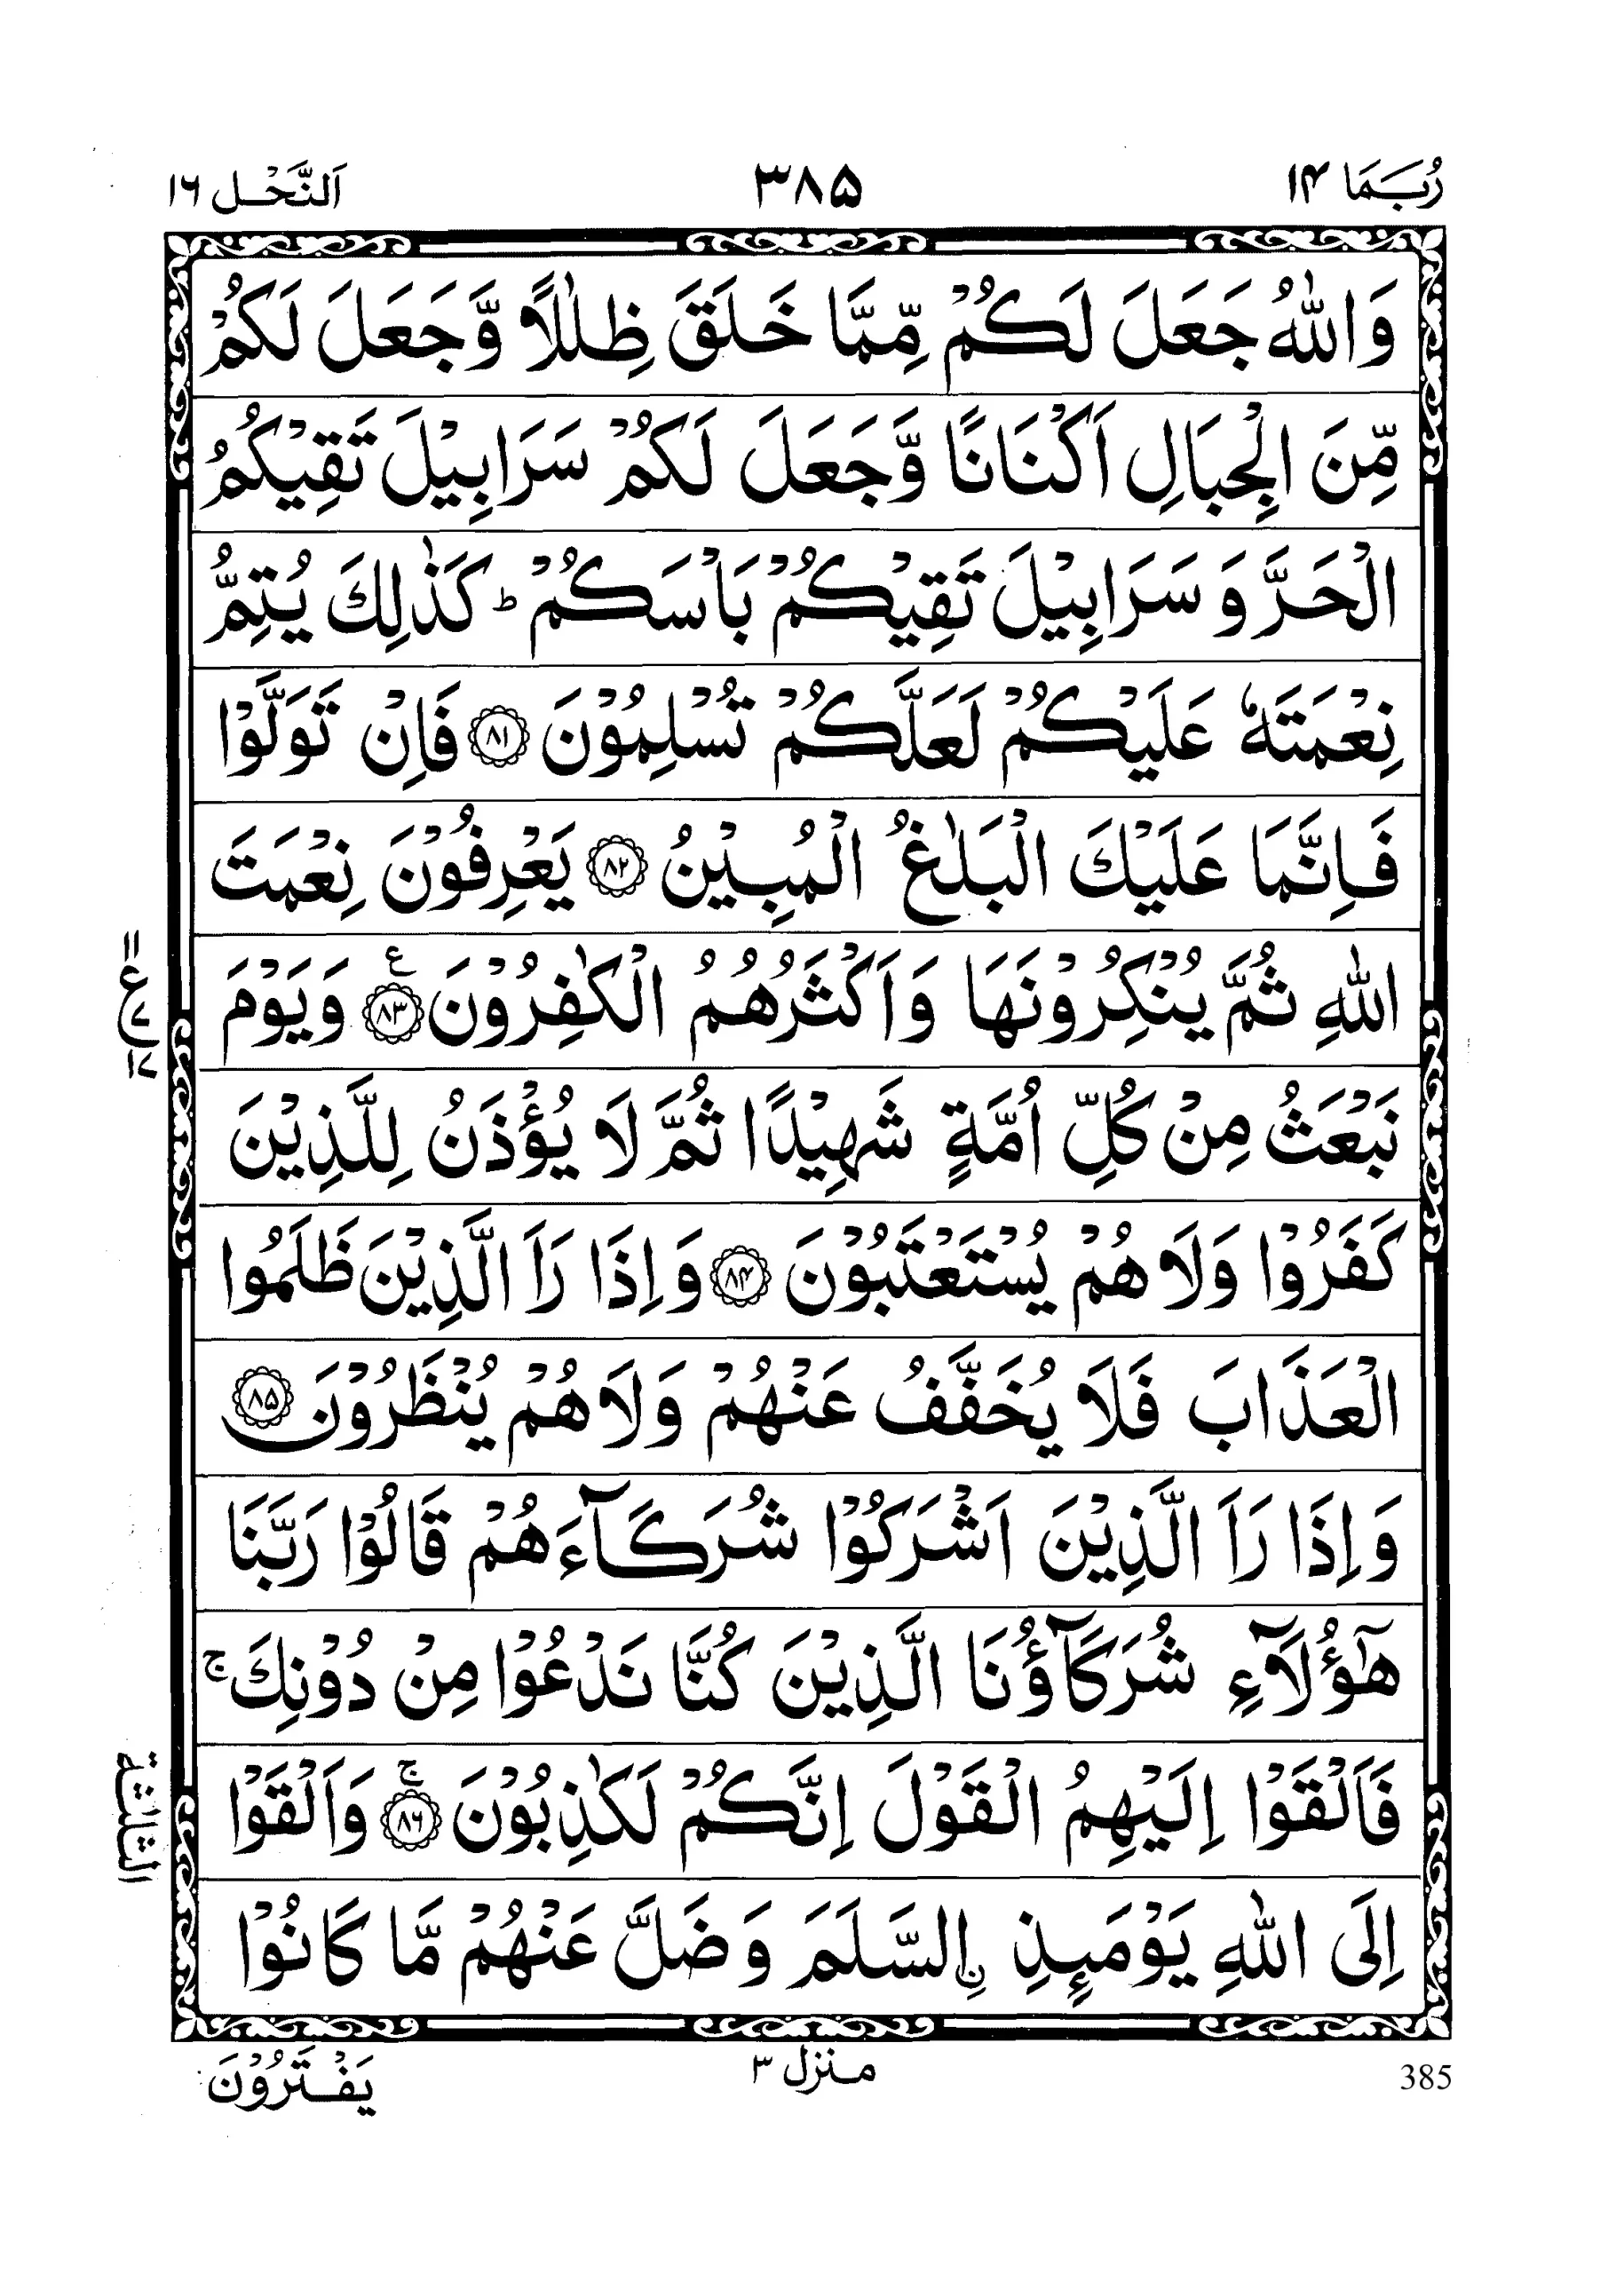 رُبَمَا ۱۴
۳۸۵
اَلنَّحْل ۱۶
وَاللّٰهُ جَعَلَ لَكُمْ مِّمَّا خَلَقَ ظِلٰلًا وَّجَعَلَ لَكُمْ
مِّنَ الْجِبَالِ اَكْنَانًا وَّجَعَلَ لَكُمْ سَرَابِيْلَ تَقِيْكُمُ
الْحَرَّ وَ سَرَابِيْلَ تَقِيْكُمْ بَاْسَكُمْ ؕ كَذٰلِكَ يُتِمُّ
نِعْمَتَهٗ عَلَيْكُمْ لَعَلَّكُمْ تُسْلِمُوْنَ ۸۱ فَاِنْ تَوَلَّوْا
فَاِنَّمَا عَلَيْكَ الْبَلٰغُ الْمُبِيْنُ ۸۲ يَعْرِفُوْنَ نِعْمَتَ
اللّٰهِ ثُمَّ يُنْكِرُوْنَهَا وَاَكْثَرُهُمُ الْكٰفِرُوْنَ ۸۳ ع وَيَوْمَ
نَبْعَثُ مِنْ كُلِّ اُمَّةٍ شَهِيْدًا ثُمَّ لَا يُؤْذَنُ لِلَّذِيْنَ
كَفَرُوْا وَلَا هُمْ يُسْتَعْتَبُوْنَ ۸۴ وَاِذَا رَاَ الَّذِيْنَ ظَلَمُوا
الْعَذَابَ فَلَا يُخَفَّفُ عَنْهُمْ وَلَا هُمْ يُنْظَرُوْنَ ۸۵
وَاِذَا رَاَ الَّذِيْنَ اَشْرَكُوْا شُرَكَآءَهُمْ قَالُوْا رَبَّنَا
هٰٓؤُلَآءِ شُرَكَآؤُنَا الَّذِيْنَ كُنَّا نَدْعُوْا مِنْ دُوْنِكَ ۚ
فَاَلْقَوْا اِلَيْهِمُ الْقَوْلَ اِنَّكُمْ لَكٰذِبُوْنَ ۸۶ ۚ وَاَلْقَوْا
اِلَى اللّٰهِ يَوْمَئِذِ ۨالسَّلَمَ وَضَلَّ عَنْهُمْ مَّا كَانُوْا
ع
۷
۱۷
الثلثة
يَفْتَرُوْنَ
منزل ۳
385